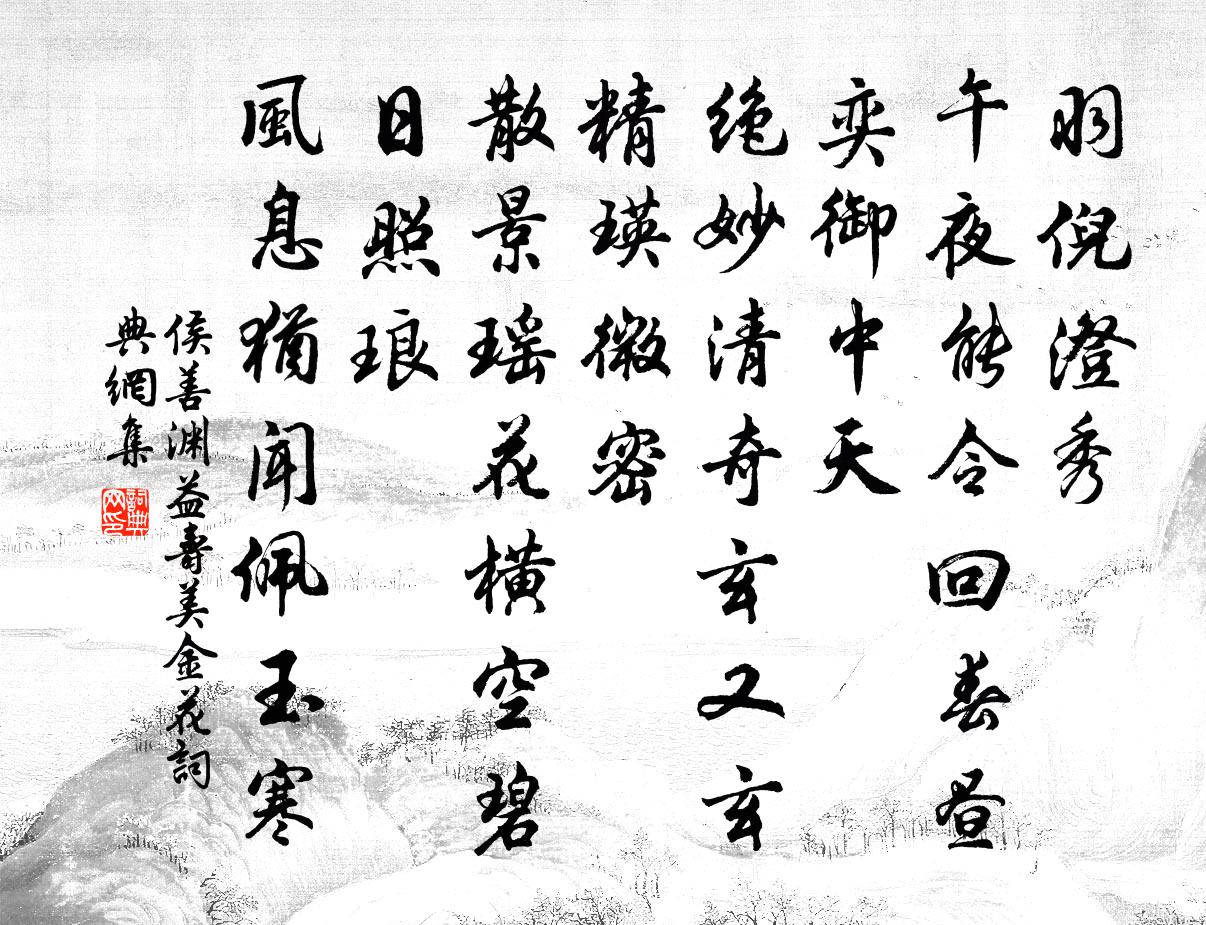 羽倪澄秀
午夜能令回春昼
奕御中天
绝妙清奇玄又玄
精瑛微密
散景瑶花横空碧
日照琅
風息猶闻佩玉寒
侯善渊益壽美金花詞
典網集
詞典網印